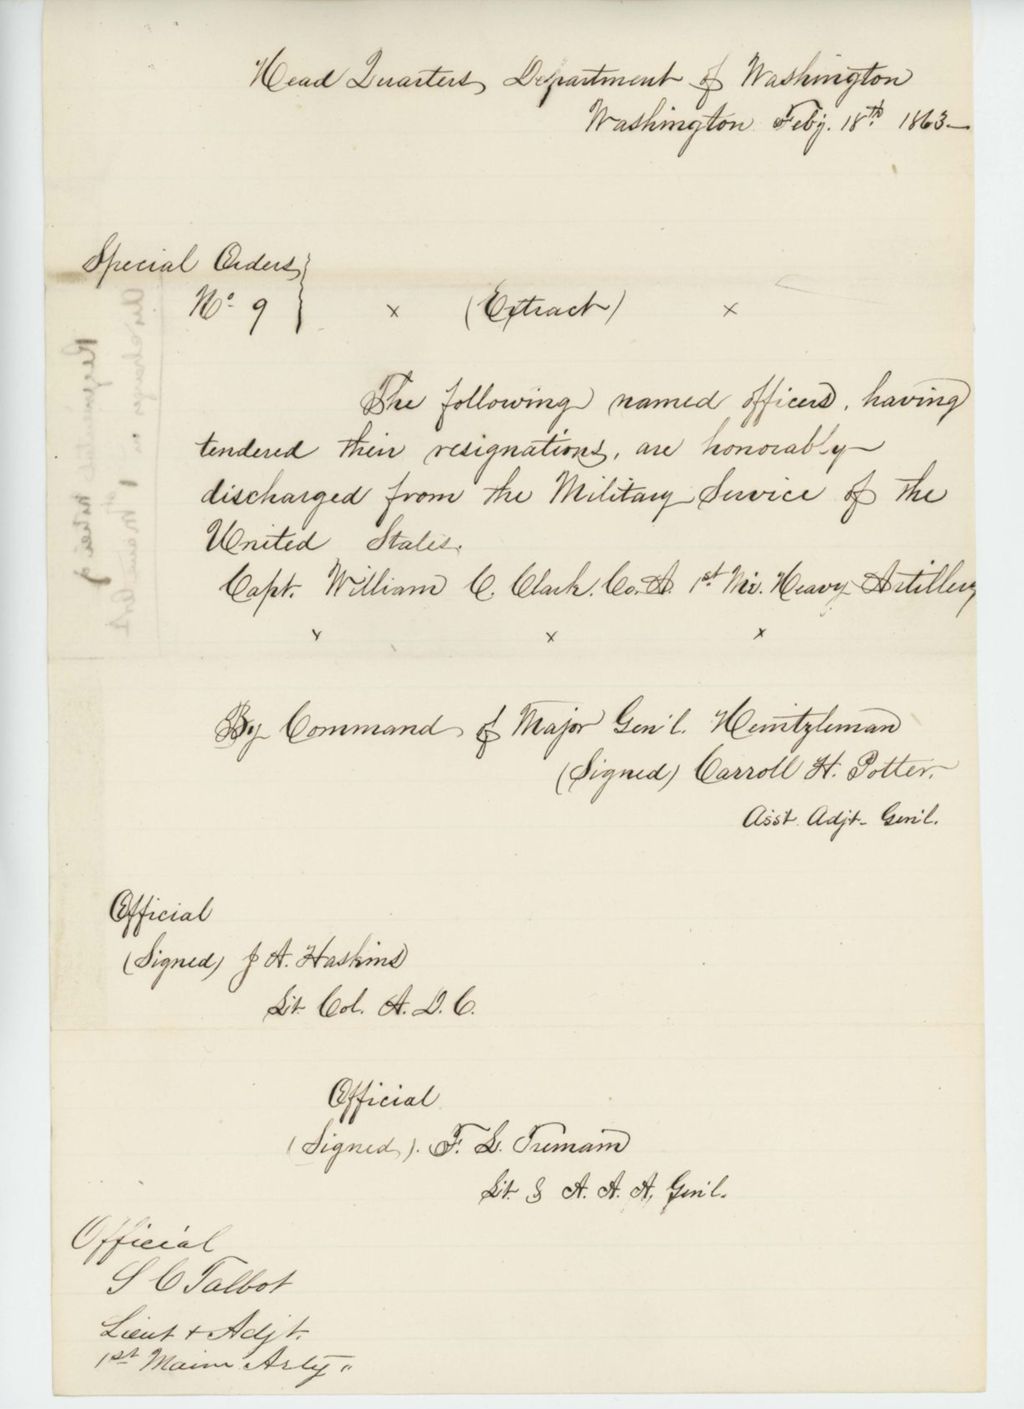 Head Quarters Department of Washington
Washington Feby. 18th 1863—
Special Orders }
No. 9 } x (Extract) x
The following named officers, having
tendered their resignations, are honorably
discharged from the Military Service of the
United States.
Capt. William C. Clark. Co. A. 1st Me. Heavy Artillery
x x x
By Command of Major Gen'l. Heintzleman
(Signed) Carroll H. Potter.
Asst Adjt. Gen'l.
Official
(Signed) J A. Haskins
Lt Col. A. D. C.
Official
(Signed). F. L.
Lt & A. A. A. Gen'l.
Official
S C Talbot
Lieut + Adjt.
1st Maine Arty